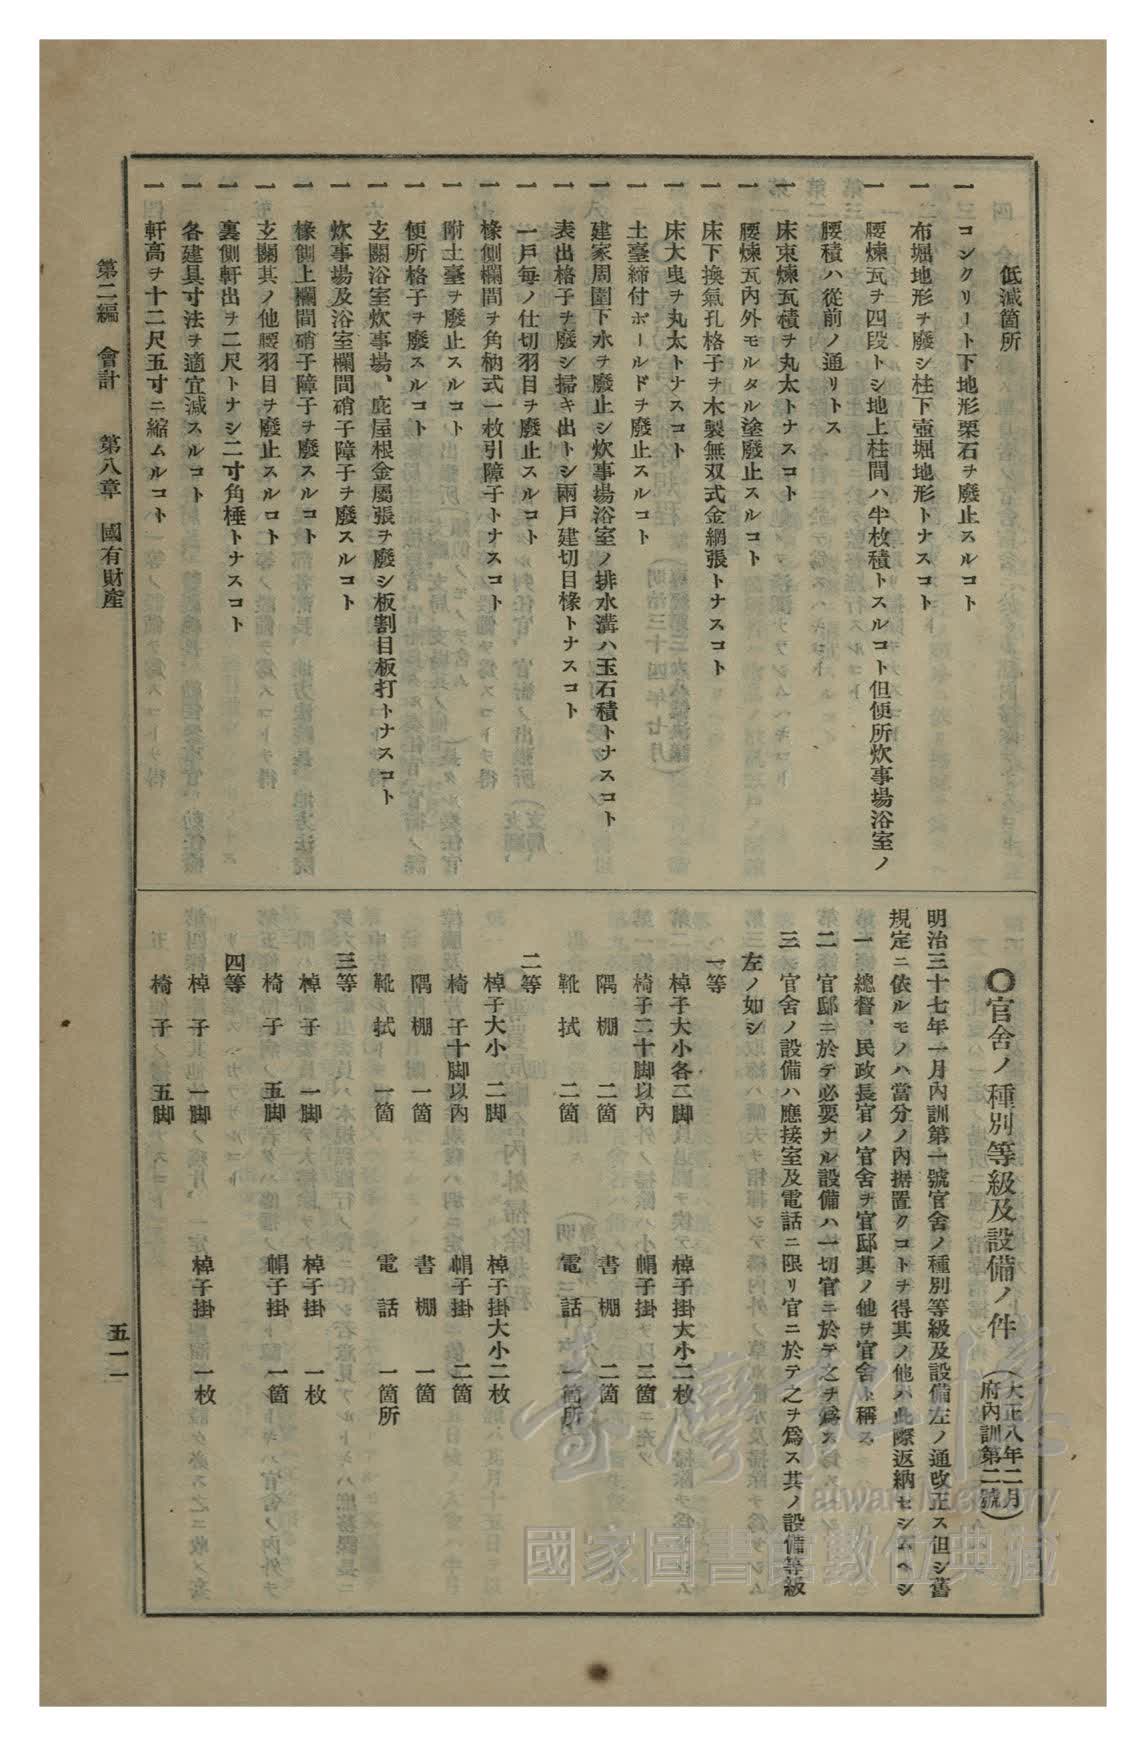 低減箇所
一 コンクリート下地形栗石ヲ廢止スルコト
一 布堀地形ヲ廢シ柱下壺堀地形トナスコト
一 腰煉瓦ヲ四段トシ地上柱間ハ半枚積トスルコト但便所炊事場浴室ノ
腰積ハ從前ノ通リトス
一 床束煉瓦積ヲ丸太トナスコト
一 腰煉瓦內外モルタル塗廢止スルコト
一 床下換氣孔格子ヲ木製無双式金網張トナスコト
一 床大曳ヲ丸太トナスコト
一 土臺締付ボールドヲ廢止スルコト
一 建家周圍下水ヲ廢止シ炊事場浴室ノ排水溝ハ玉石積トナスコト
一 表出格子ヲ廢シ掃キ出トシ兩戶建切目椽トナスコト
一 一戶每ノ仕切羽目ヲ廢止スルコト
一 椽側欄間ヲ角柄式一枚引障子トナスコト
一 附土臺ヲ廢止スルコト
一 便所格子ヲ廢スルコト
一 玄關浴室炊事場、庇屋根金屬張ヲ廢シ板割目板打トナスコト
一 炊事場及浴室欄間硝子障子ヲ廢スルコト
一 椽側上欄間硝子障子ヲ廢スルコト
一 玄關其ノ他腰羽目ヲ廢止スルコト
一 裏側軒出ヲ二尺トナシ二寸角棰トナスコト
一 各建具寸法ヲ適宜減スルコト
一 軒高ヲ十二尺五寸ニ縮ムルコト
〇官舍ノ種別等級及設備ノ件(大正八年二月府內訓第二號)
明治三十七年一月內訓第一號官舍ノ種別等級及設備左ノ通改正ス但シ舊
規定ニ依ルモノハ當分ノ內据置クコトヲ得其ノ他ハ此際返納セシムヘシ
一 總督、民政長官ノ官舍ヲ官邸其ノ他ヲ官舍ト稱ス
二 官邸ニ於テ必要ナル設備ハ一切官ニ於テ之ヲ爲ス
三 官舍ノ設備ハ應接室及電話ニ限リ官ニ於テ之ヲ爲ス其ノ設備等級
左ノ如シ
一等
棹子大小各二脚 棹子掛大小二枚
椅子二十脚以內 帽子掛 二箇
隅棚 二箇 書棚 二箇
靴拭 二箇 電話 一箇所
二等
棹子大小 二脚 棹子掛大小二枚
椅子十脚以內 帽子掛 二箇
隅棚 一箇 書棚 一箇
靴拭 一箇 電話 一箇所
三等
棹子 一脚 棹子掛 一枚
椅子 五脚 帽子掛 一箇
四等
棹子 一脚 棹子掛 一枚
椅子 五脚
第二編 會計 第八章 國有財產
五一一
臺灣記憶
Taiwan Memory
國家圖書館數位典藏